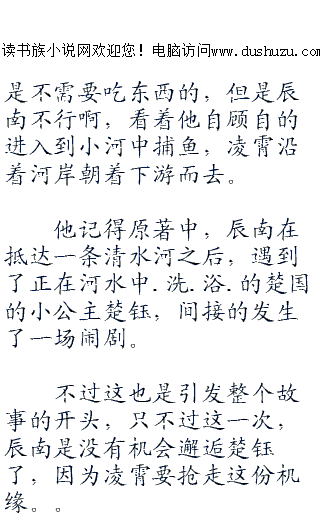 读书族小说网欢迎您！电脑访问www.dushuzu.com
是不需要吃东西的，但是辰
南不行啊，看着他自顾自的
进入到小河中捕鱼，凌霄沿
着河岸朝着下游而去。
他记得原著中，辰南在
抵达一条清水河之后，遇到
了正在河水中.洗.浴.的楚国
的小公主楚钰，间接的发生
了一场闹剧。
不过这也是引发整个故
事的开头，只不过这一次，
辰南是没有机会邂逅楚钰
了，因为凌霄要抢走这份机
缘。。